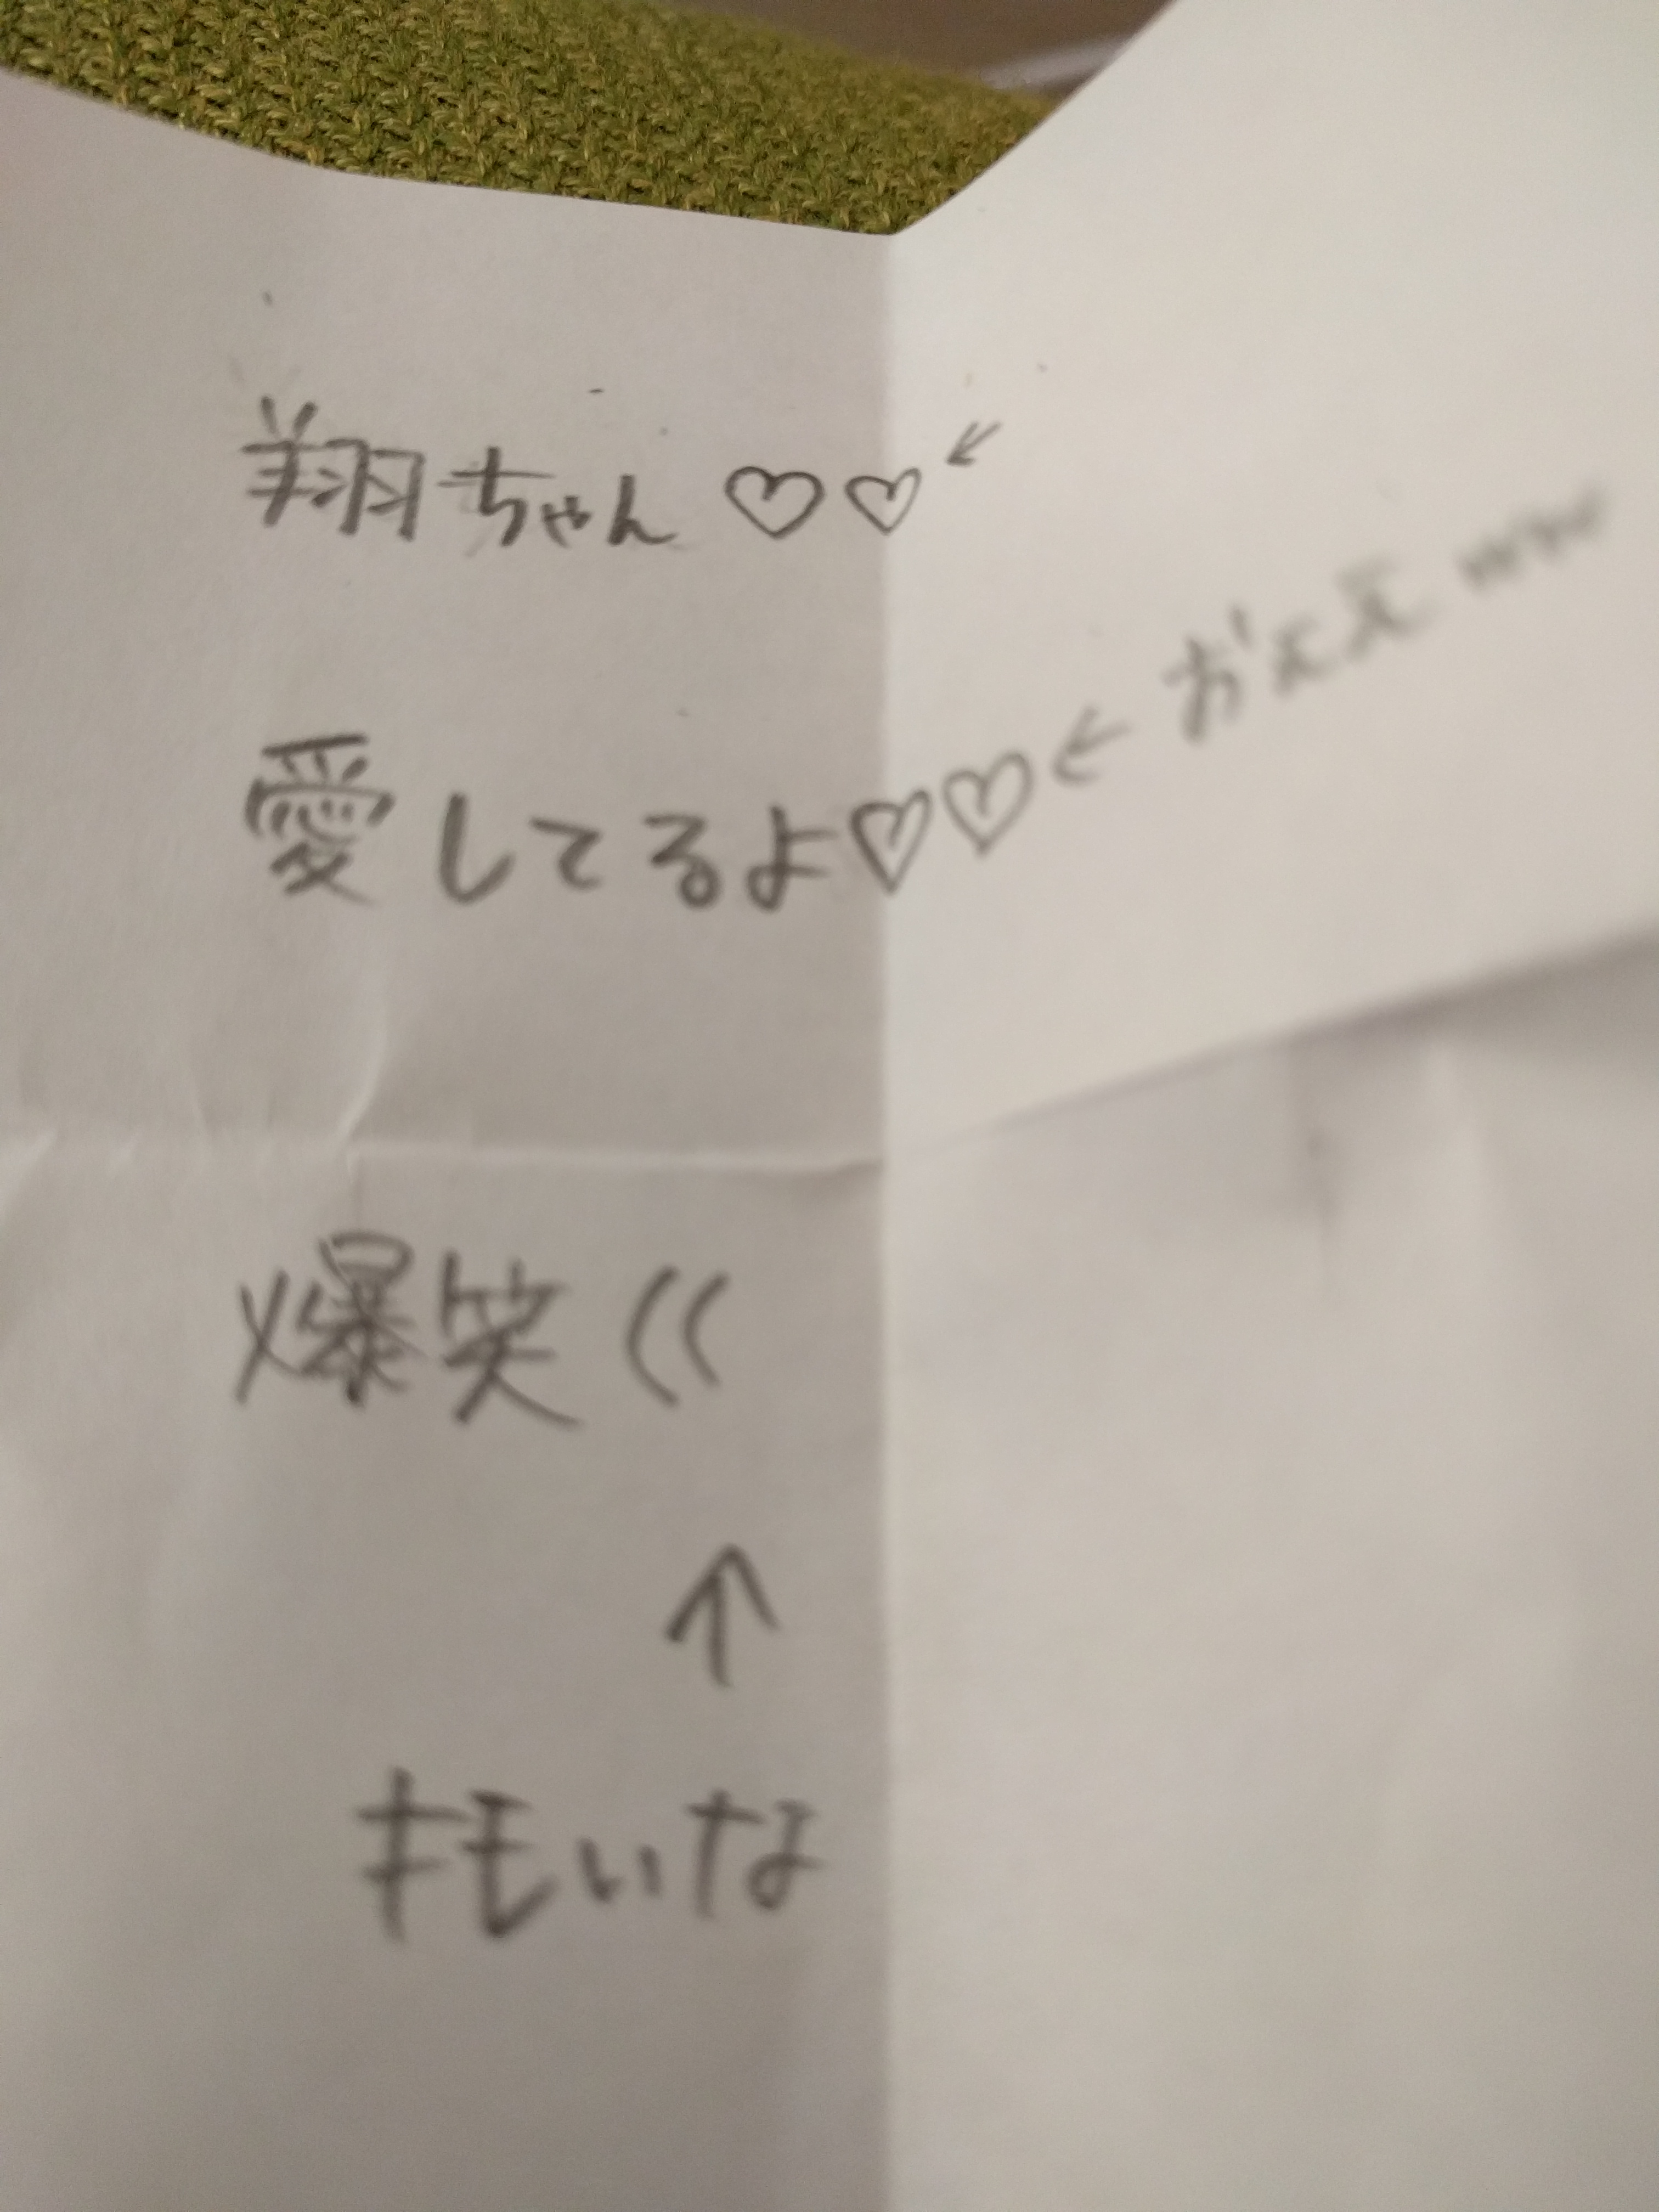 翔ちゃん♡♡↙
愛してるよ♡♡← おええwww
爆笑((
↑
キモいな